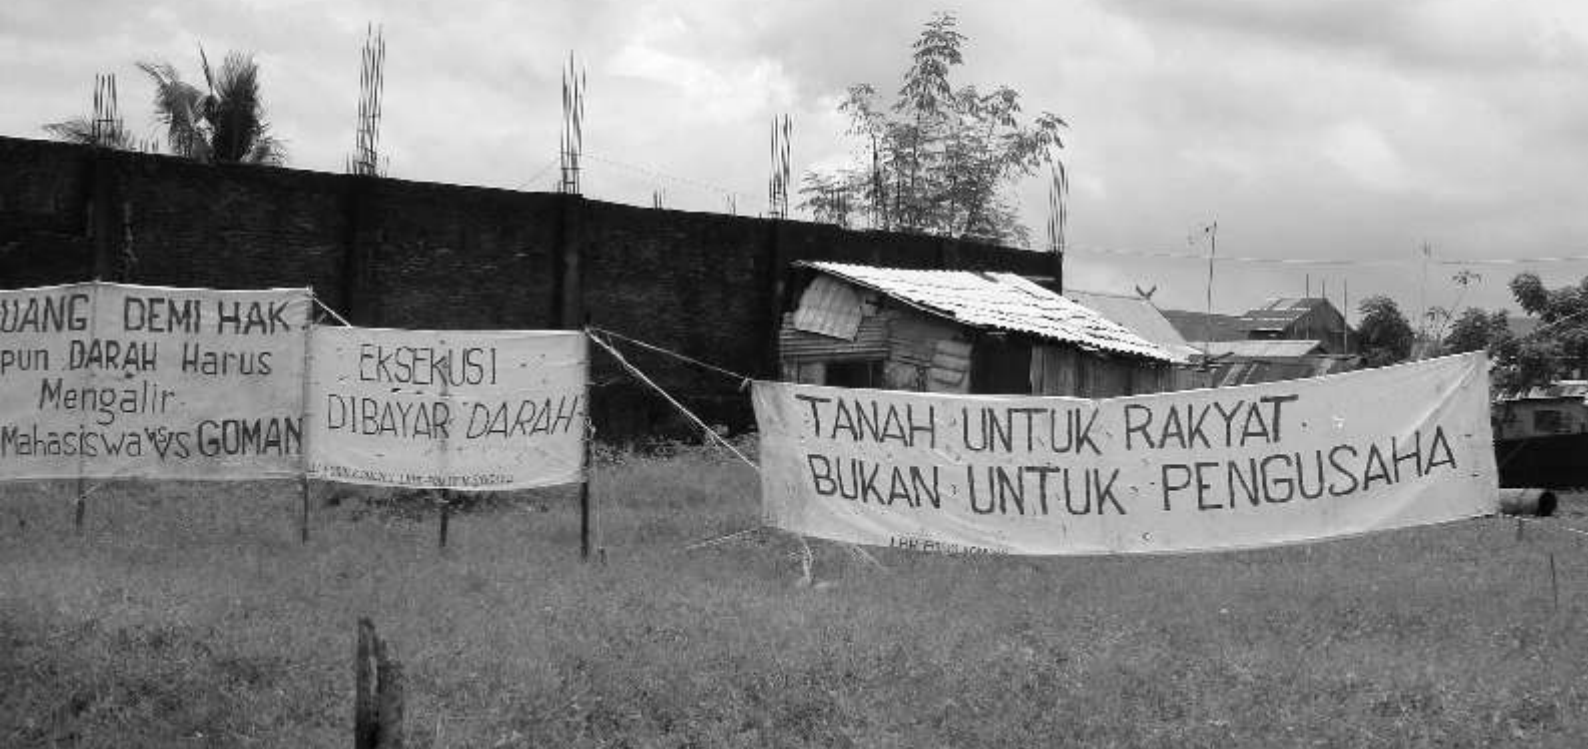 UANG DEMI HAK
pun DARAH Harus
Mengalir
Mahasiswa VS GOMAN
EKSEKUSI
DIBAYAR DARAH
TANAH UNTUK RAKYAT
BUKAN UNTUK PENGUSAHA